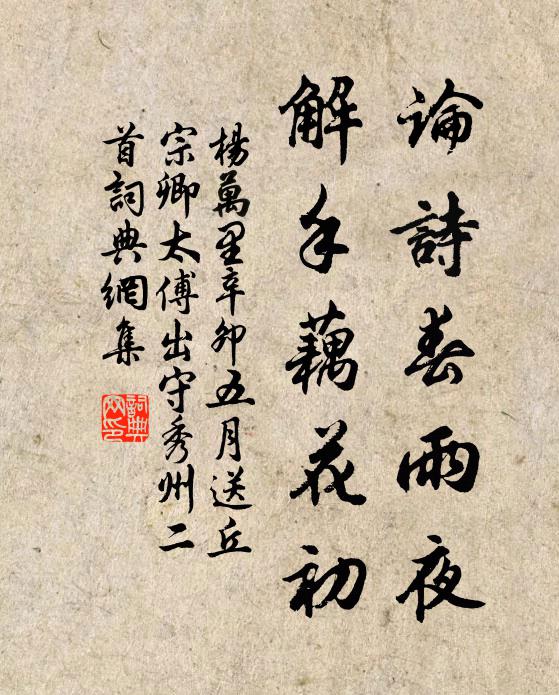 論詩春雨夜
解手藕花初
楊萬里辛卯五月送丘
宗卿太傅出守秀州二
首詞典網集
詞典網印